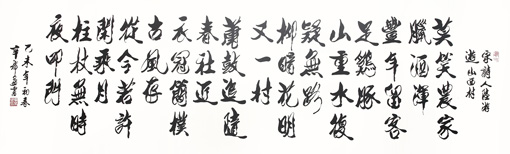 宋詩人陸游
遊山西村
莫笑農家
臘酒渾
豐年留客
足鷄豚
山重水復
疑無路
柳暗花明
又一村
蕭鼓追隨
春社近
衣冠簡樸
古風存
從今若許
閑乘月
柱杖無時
夜叩門
乙未年初春